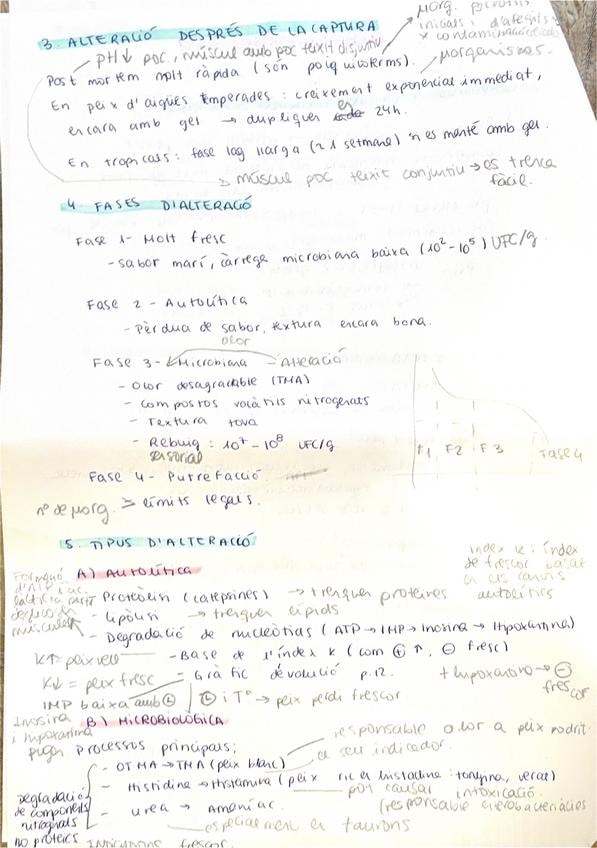 morg. patògens
inicials i d'afegits
x contaminació
morganismes.
3. ALTERACIÓ DESPRÉS DE LA CAPTURA
pH↓ poc, múscul amb poc teixit
Post mortem molt ràpida (són poiquiloterms).
En peix d'aigües temperades: creixement exponencial immediat,
encara amb gel → dupliquen en 24h.
En tropicals: fase lag llarga (≥1 setmana) si es manté amb gel.
→ múscul poc teixit conjuntiu → es trenca
fàcil.
4. FASES D'ALTERACIÓ
Fase 1- Molt fresc
- Sabor marí, càrrega microbiana baixa (10² - 10⁵) UFC/g.
Fase 2 - Autolítica
- Pèrdua de sabor, textura encara bona.
olor
Fase 3- Microbiana - Alteració
- Olor desagradable (TMA)
- Compostos volàtils nitrogenats
- Textura tova
- Rebuig: 10⁷ - 10⁸ UFC/g
sensorial
F1 F2 F3 Fase 4
Fase 4 - Putrefacció
nº de morg. ≥ límits legals.
5. TIPUS D'ALTERACIÓ
Index k: índex
de frescor basat
en els canvis
autolítics
A) AUTOLÍTICA
- Proteòlisi (catepsines) → trenquen proteïnes
- Lipòlisi → trenquen lípids
- Degradació de nucleòtids (ATP → IMP → Inosina → Hipoxantina)
K↑ peix vell - Base de l'índex k (com ⊕ ↑, ⊖ fresc)
K↓ = peix fresc - Gràfic d'evolució p.12. + hipoxantina → ⊖
frescor
IMP baixa amb ⊕ t i Tª → peix perdi frescor
Inosina
i hipoxantina
pugen
B) MICROBIOLÒGICA
responsable olor a peix podrit.
és el seu indicador.
Processos principals;
- OTMA → TMA (peix blanc)
- Histidina → Histamina (peix ric en histidina: tonyina, verat)
pot causar intoxicació.
Degradació
de components
nitrogenats
no proteics
(responsable enterobacteriàcies
- urea → Amoníac.
especialment en taurons
INDICADORS FRESCOR